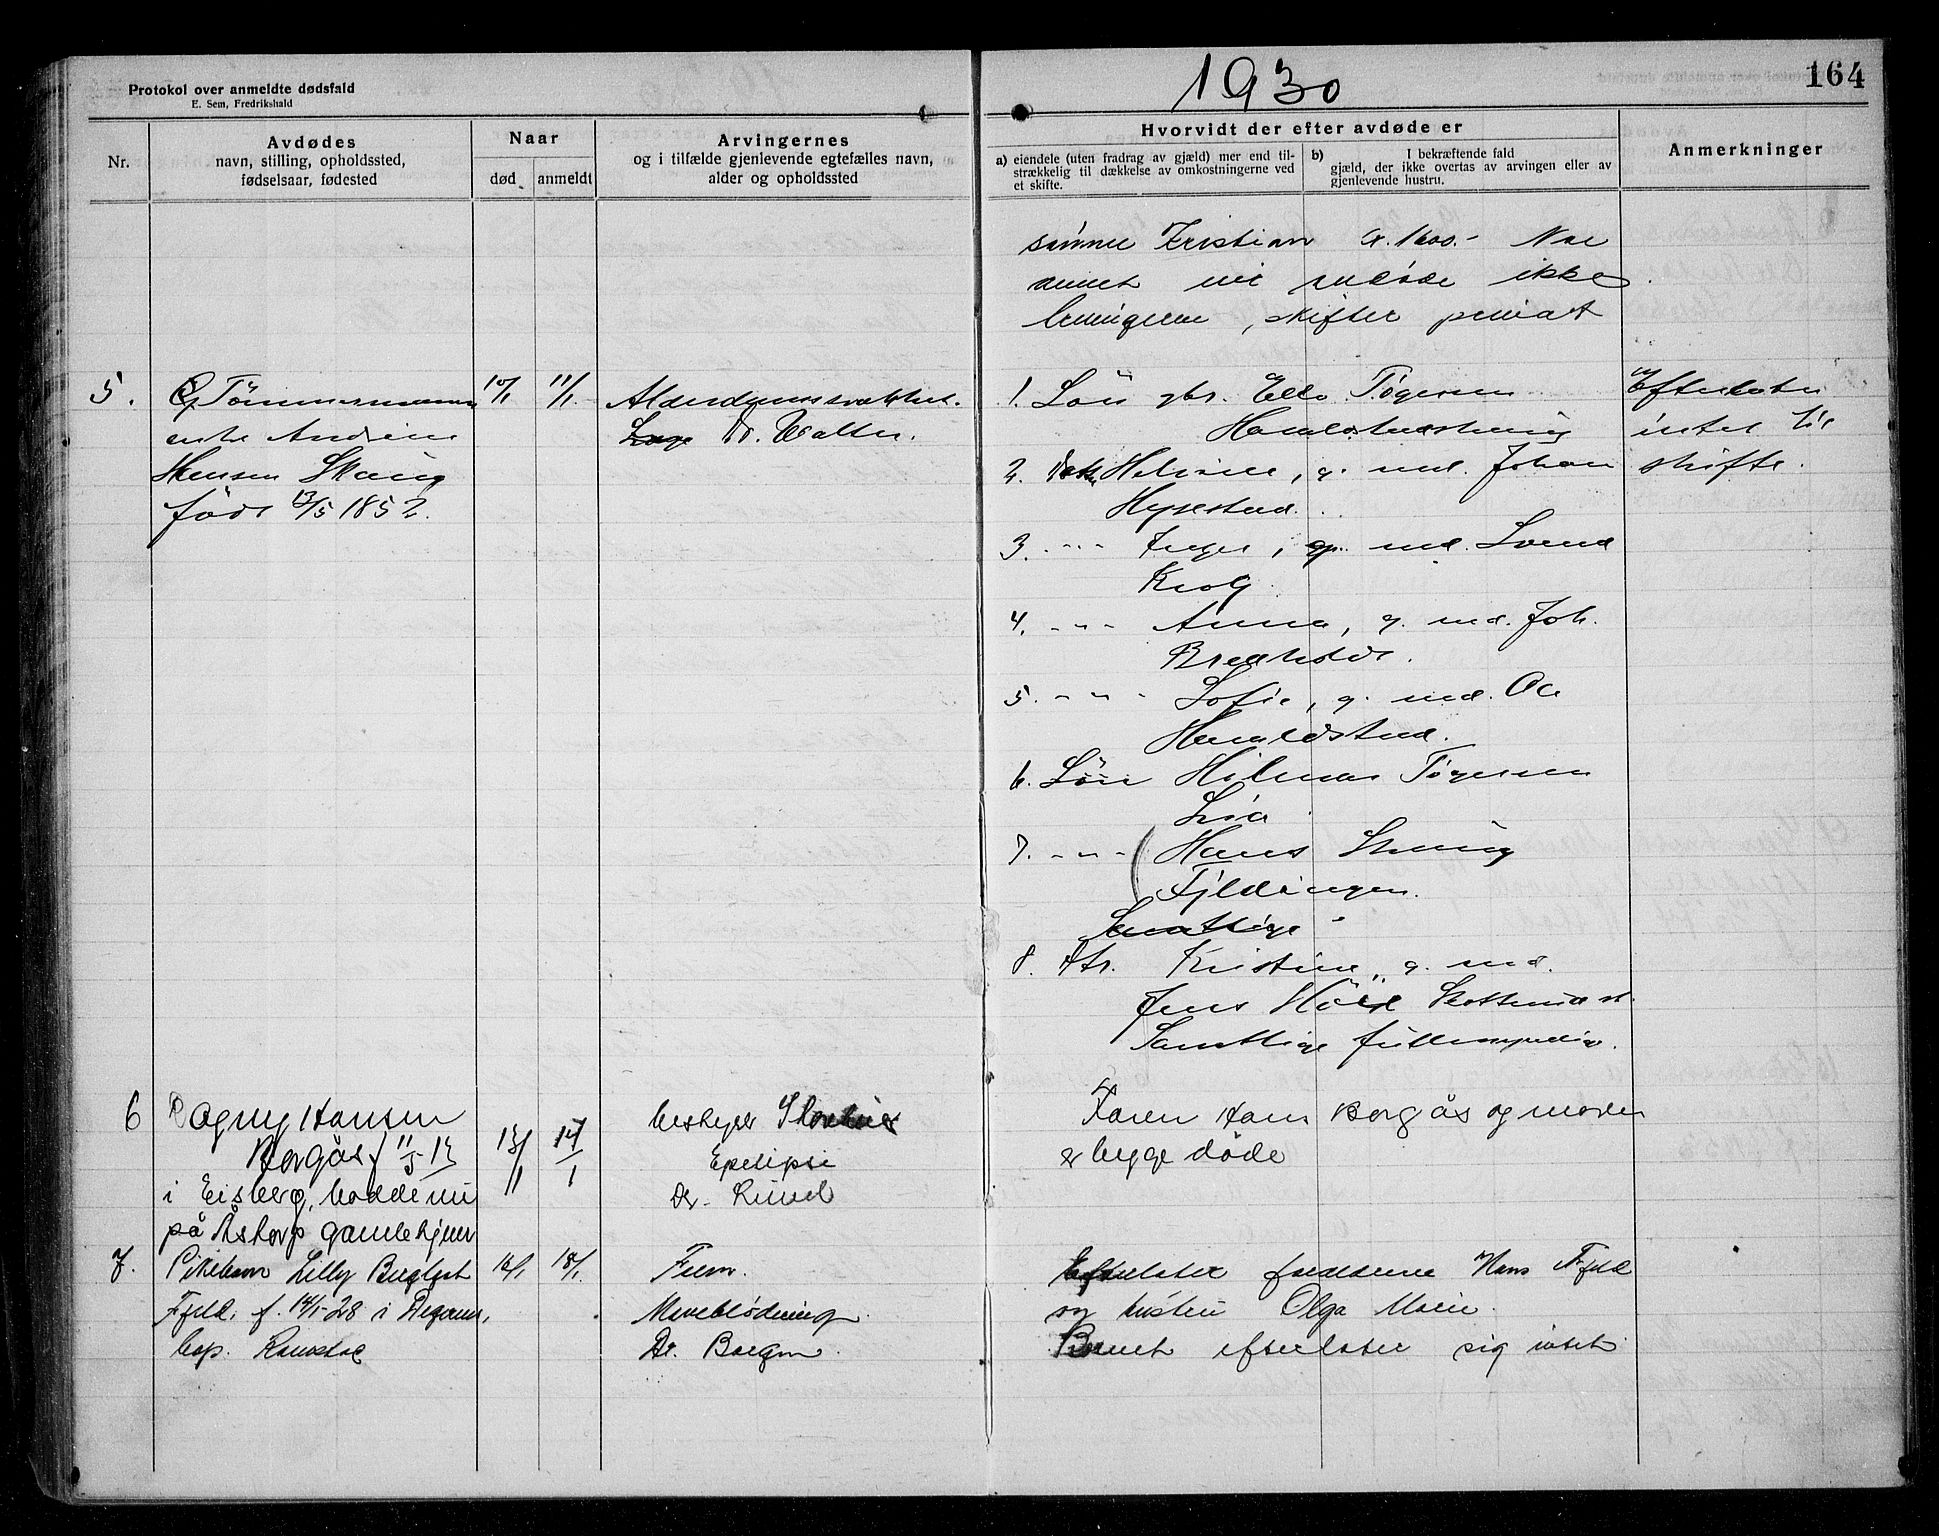 Protokol over anmeldte dødsfald
E. Sem, Fredrikshald
1930
164
Nr.
Avdødes
navn, stilling, opholdssted,
fødselsaar, fødested
Naar
død
anmeldt
Arvingernes
og i tilfælde gjenlevende egtefælles navn,
alder og opholdssted
Hvorvidt der efter avdøde er
a) eiendele (uten fradrag av gjæld) mer end til-
strækkelig til dækkelse av omkostningerne ved
et skifte.
b) I bekræftende fald
gjæld, der ikke overtas av arvingen eller av
gjenlevende hustru.
Anmerkninger
Kristian kr. 1600.-
ikke
, skifter privat
5.
Tömmermanns
enke Andrine
Hansen Skaug
född 13/5 1852.
10/1
11/1
Alderdomssvakhet.
Dr. Walter.
1. Sön gbr. Tøgersen
Haraldstad
2. Datter g. med. Johan
3. -"- Inger, g. med. Svend
Krog
4. -"- Anna, g. med. Joh.
5. -"- Sofie, g. med. Ole
Haraldstad.
6. Sön Hilmar Tøgersen
7. -"- Hans Skaug
Samtlige
8. Dtr. Kristine, g. med.
Jens
Samtlige fuldmyndige.
Efterlater
intet til
skifte.
6
Dagny Hansen
Borgås f 11/5 13
i Eisberg, bodde nu
på Åstorp gamlehjem
13/1
14/1
bestyrer
Epelipsi
Dr.
Faren Hans Borgås og moren
er begge döde
7.
Pikebarn Lilly
Fjeld, f. 14/5-28 i Degernes,
bop. Ramstad
16/1
18/1
Faren.
Maveblødning
Dr. Borgen.
Efterlater foreldrene Hans Fjeld
og hustru Olga Marie.
Barnet efterlater sig intet